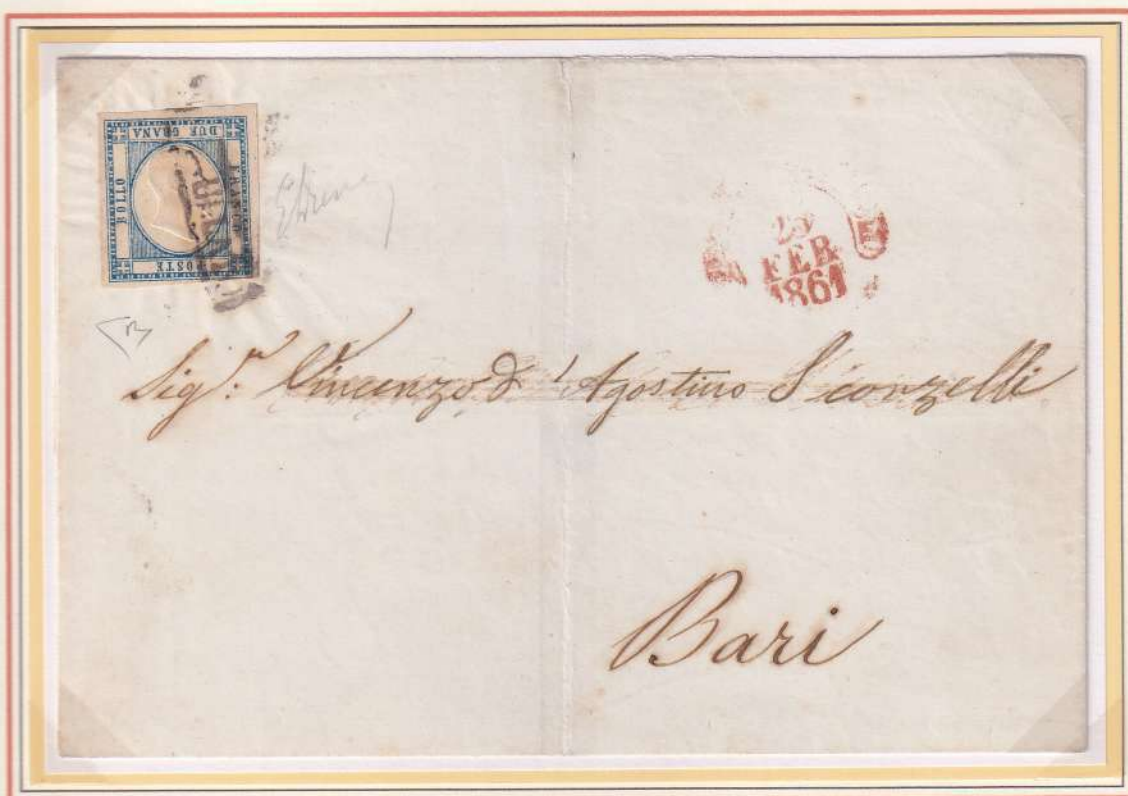 DUE GRANA
FRANCO
BOLLO
POSTE
25
FEB
1861
Sigr. Vincenzo d'Agostino Sconzelli
Bari